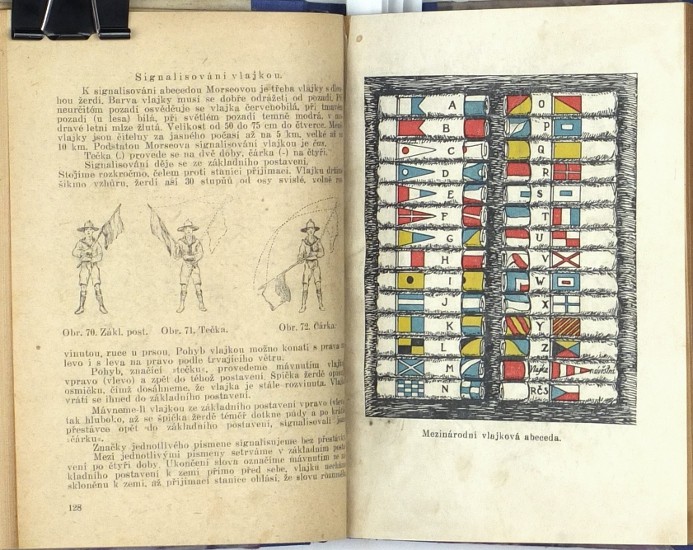 Signalisování vlajkou.
K signalisování abecedou Morseovou je třeba vlajky s
hou žerdí. Barva vlajky musí se dobře odrážeti od pozadí.
neurčitém pozadí osvědčuje se vlajka červenobílá, při
pozadí (u lesa) bílá, při světlém pozadí temně modrá, v
dravé letní mlze žlutá. Velikost od 50 do 75 cm do čtverce.
vlajky jsou čitelny za jasného počasí až na 5 km, velké až
10 km. Podstatou Morseova signalisování vlajkou je čas.
Tečka (.) provede se na dvě doby, čárka (-) na čtyři.
Signalisování děje se ze základního postavení.
Stojíme rozkročmo, čelem proti stanici přijímací. Vlajku
šikmo vzhůru, žerdí asi 30 stupňů od osy svislé, volně
Obr. 70. Zákl. post. Obr. 71. Tečka. Obr. 72. Čárka.
vinutou, ruce u prsou. Pohyb vlajkou možno konati s prava
levo i s leva na pravo podle trvajícího větru.
Pohyb, značící »tečku«, provedeme mávnutím
vpravo (vlevo) a zpět do téhož postavení. Špička žerdě
osmičku, čímž dosáhneme, že vlajka je stále rozvinuta.
vrátí se ihned do základního postavení.
Mávneme-li vlajkou ze základního postavení vpravo
tak hluboko, až se špička žerdě téměř dotkne půdy a po
přestávce opět do základního postavení, signalisovali
»čárku«.
Značky jednotlivého písmene signalisujeme bez
Mezi jednotlivými písmeny setrváme v základním
vení po čtyři doby. Ukončení slova označíme mávnutím
kladního postavení k zemi přímo před sebe, vlajku
skloněnu k zemi, až přijímací stanice ohlásí, že slovu
128
A O
B P
C Q
D R
E S
F T
G U
H V
I W
J X
K Y
L Z
M Vlajka návěštní
N RČS
Mezinárodní vlajková abeceda.